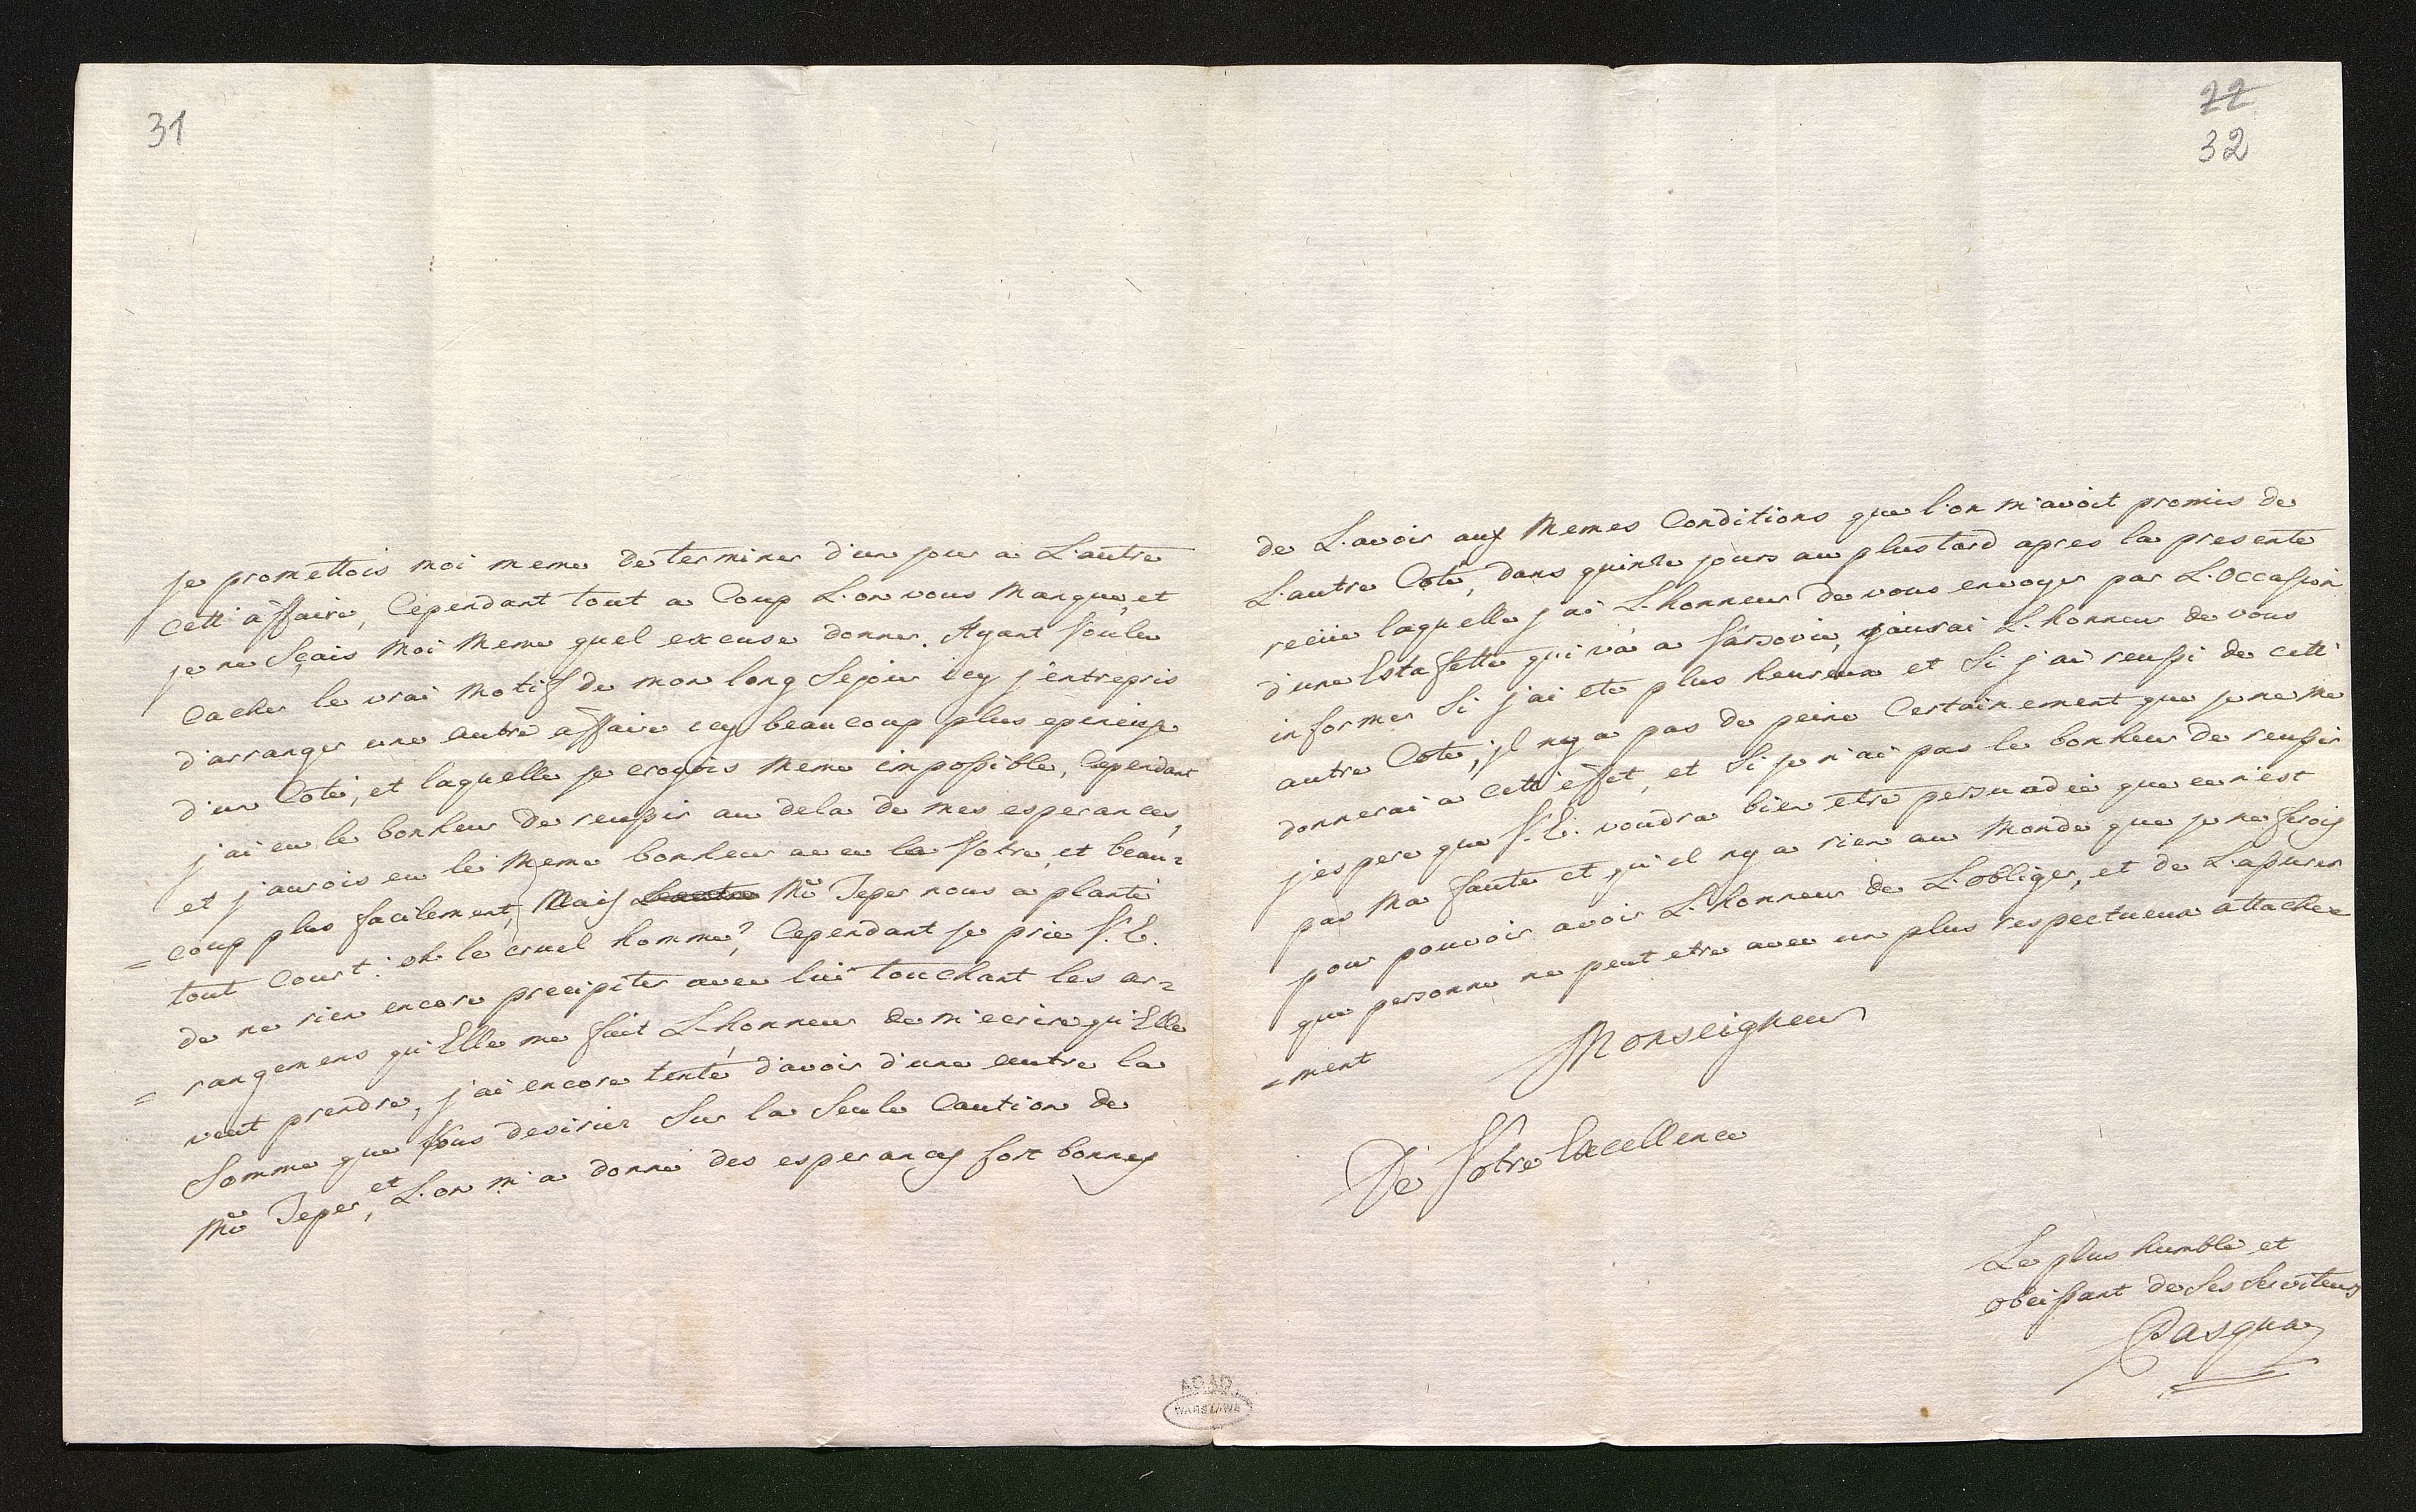 31
je promettois moi meme de terminer d'un jour a L'autre
cett' affaire, Cependant tout a Coup L'on vous manque, et
je ne sçais moi meme quel excuse donner. Ayant Voulu
Cacher le vrai motif de mon long Sejour icy j'entrepris
d'arranger une autre affaire icy beaucoup plus epineuse
d'un Coté, et laquelle je croyois meme impossible, Cependant
j'ai eu le bonheur de reussir au dela de mes esperances,
et j'aurois eu le meme bonheur avec la Votre, et beau=
=coup plus facilement, Mais Mr Teper nous a planté
tout Court: oh le cruel homme? Cependant je prie V. E.
de ne rien encore precipiter avec lui touchant les ar=
=rangemens qu'Elle me fait L'honneur de m'ecrire qu'Elle
veut prendre, j'ai encore tenté d'avoir d'une autre la
Somme que Vous desiriez Sur la Seule Caution de
Mr Teper, et L'on m'a donné des esperances fort bonnes
22
32
de L'avoir aux Memes Conditions que l'on m'avoit promis de
L'autre Coté, dans quinze jours au plus tard apres la presente
reçüe laquelle j'ai L'honneur de vous envoyer par L'occasion
d'une Estaffette qui va a Varsovie, j'aurai L'honneur de vous
informer Si j'ai eté plus heureux et Si j'ai reussi de cett'
autre Coté, il n'y a pas de peine Certainement que je ne me
donnerai a cett' effet, et Si je n'ai pas le bonheur de reussir
j'espere que V. E. voudra bien etre persuadée que ce n'est
pas Ma faute et qu'il n'y a rien au Monde que je ne ferois
pour pouvoir avoir L'honneur de L'obliger, et de L'assurer
que personne ne peut etre avec un plus respectueux attache=
=ment
Monseigneur
De Votre Excellence
Le plus humble et
obeissant de Ses Serviteurs
Pasqua
AGAD
WARSZAWA